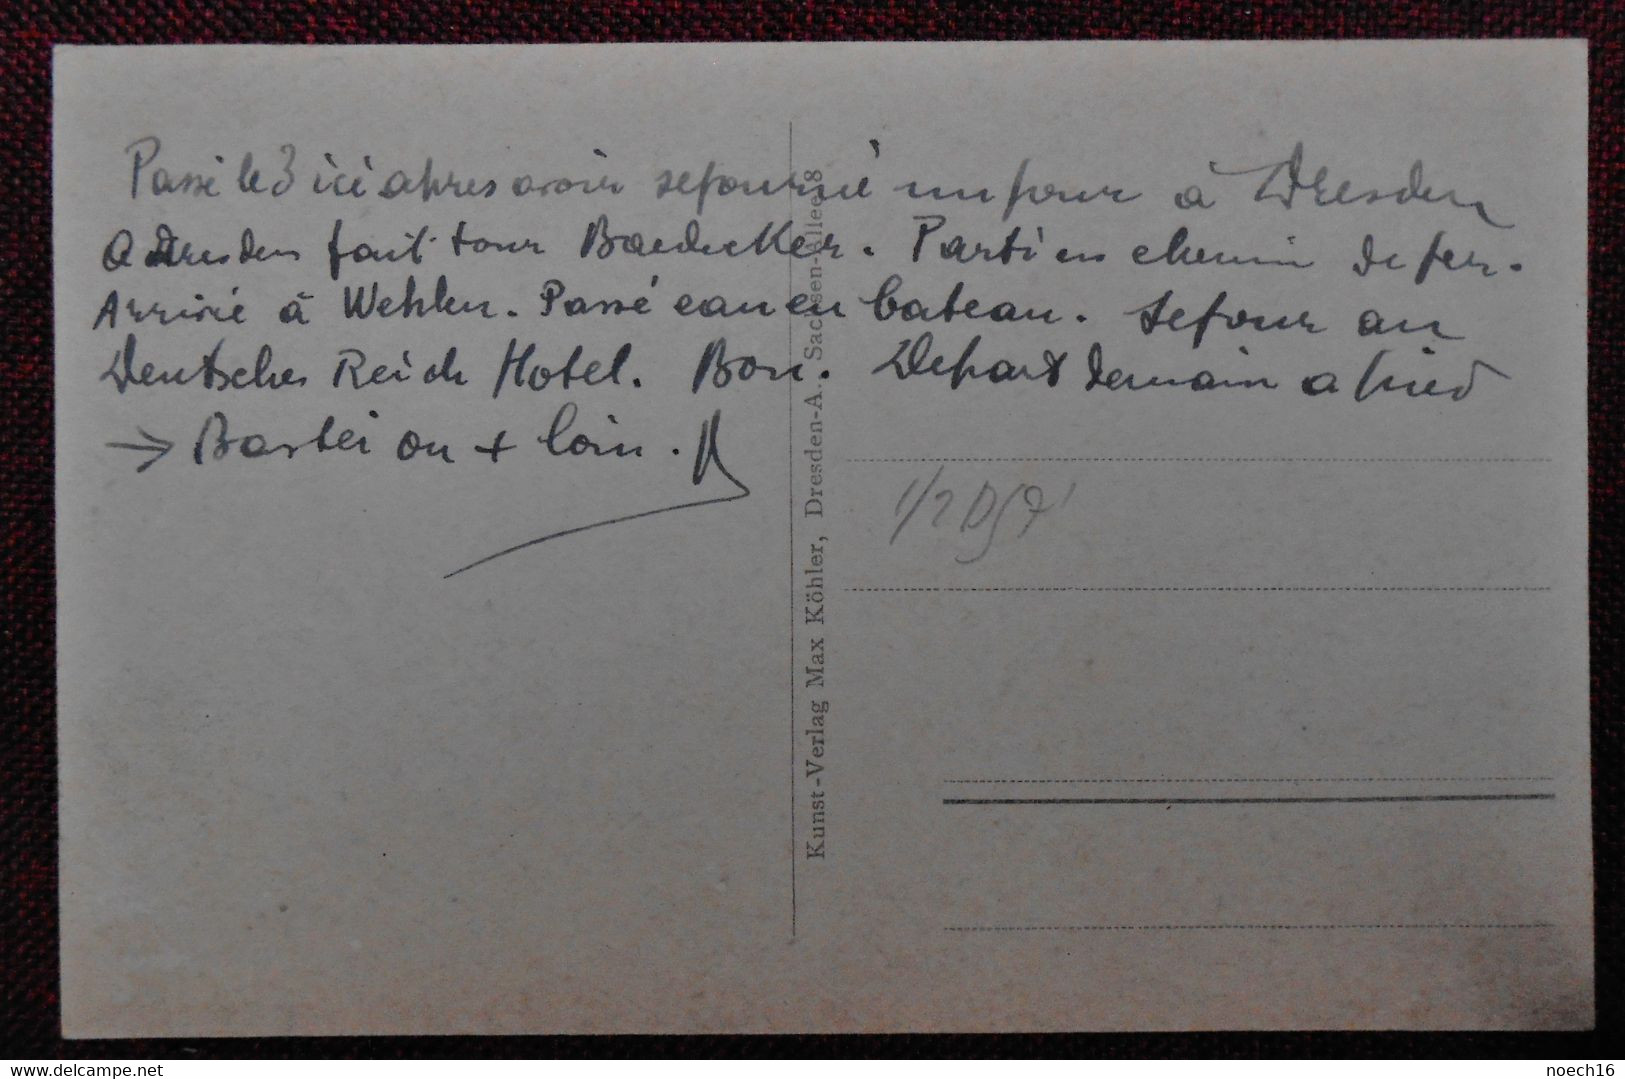 Passé le 3 ici apres avoir sejourné un jour à Dresden
A Dresden fait tour Baedecker. Parti en chemin de fer.
Arrivé à Wehlen. Passé eau en bateau. Sejour au
Deutsches Reich Hotel. Bon. Depart demain a pied
→ Bastei ou + loin.
Kunst-Verlag Max Köhler, Dresden-A. Sachsen-Allee 8
1/2
delcampe.net
noech16